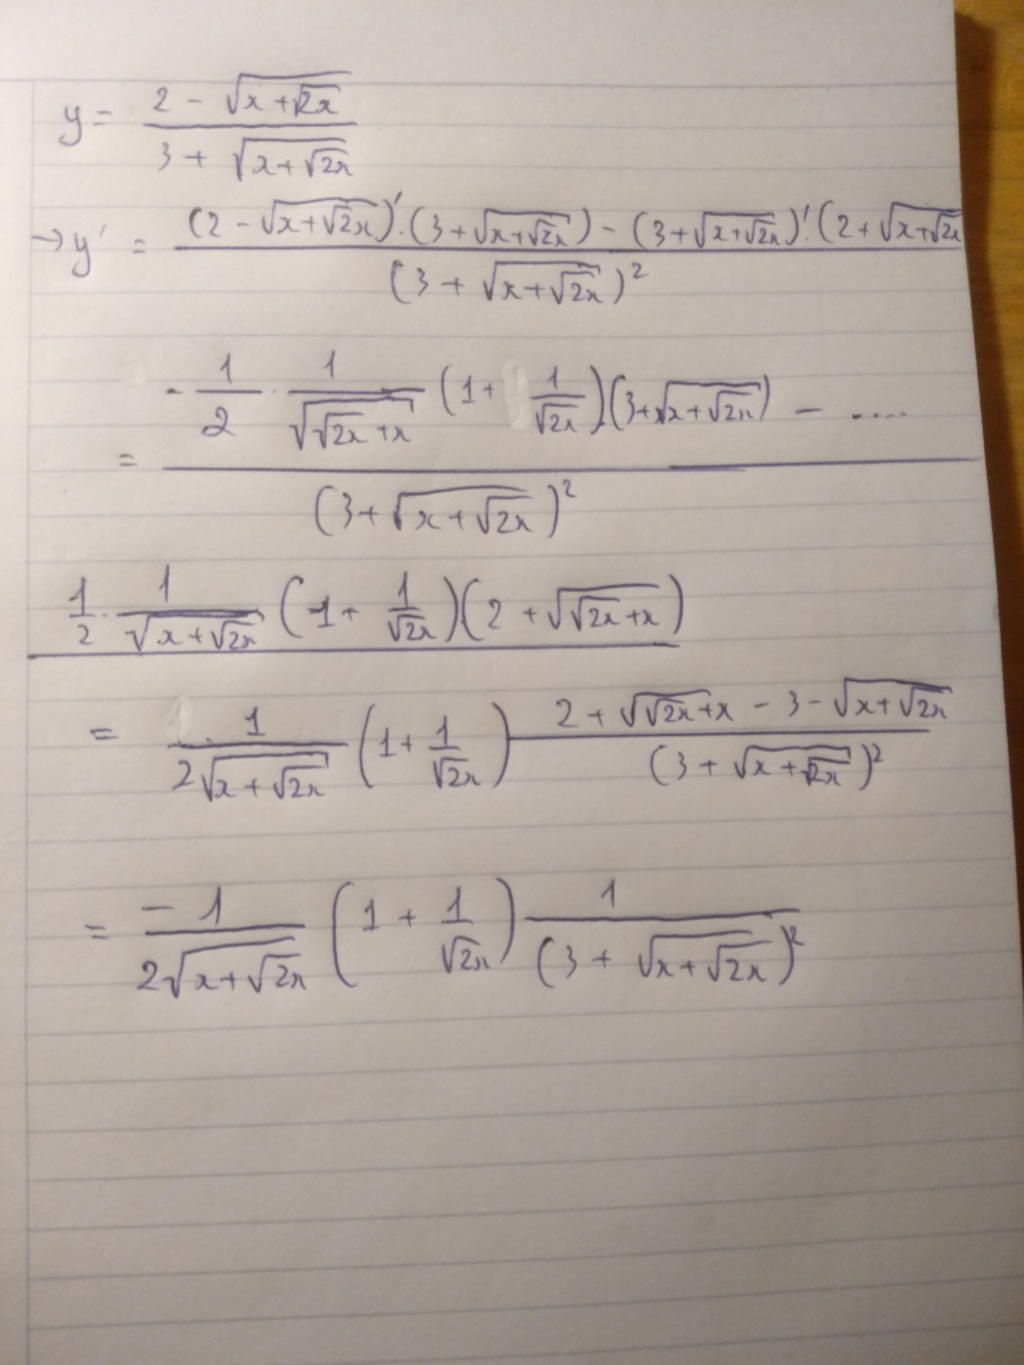 y = \frac{2 - \sqrt{x + \sqrt{2x}}}{3 + \sqrt{x + \sqrt{2x}}}
→ y' = \frac{(2 - \sqrt{x + \sqrt{2x}})' \cdot (3 + \sqrt{x + \sqrt{2x}}) - (3 + \sqrt{x + \sqrt{2x}})' \cdot (2 + \sqrt{x + \sqrt{2x}}}{(3 + \sqrt{x + \sqrt{2x}})^2}
= \frac{-\frac{1}{2} \cdot \frac{1}{\sqrt{\sqrt{2x} + x}} (1 + \frac{1}{\sqrt{2x}}) \cdot (3 + \sqrt{x + \sqrt{2x}}) - \ldots.}{(3 + \sqrt{x + \sqrt{2x}})^2}
\frac{1}{2} \cdot \frac{1}{\sqrt{x + \sqrt{2x}}} (1 + \frac{1}{\sqrt{2x}}) (2 + \sqrt{\sqrt{2x} + x})
= \frac{1}{2\sqrt{x + \sqrt{2x}}} (1 + \frac{1}{\sqrt{2x}}) \frac{2 + \sqrt{\sqrt{2x} + x} - 3 - \sqrt{x + \sqrt{2x}}}{(3 + \sqrt{x + \sqrt{2x}})^2}
= \frac{-1}{2\sqrt{x + \sqrt{2x}}} (1 + \frac{1}{\sqrt{2x}}) \frac{1}{(3 + \sqrt{x + \sqrt{2x}})^2}